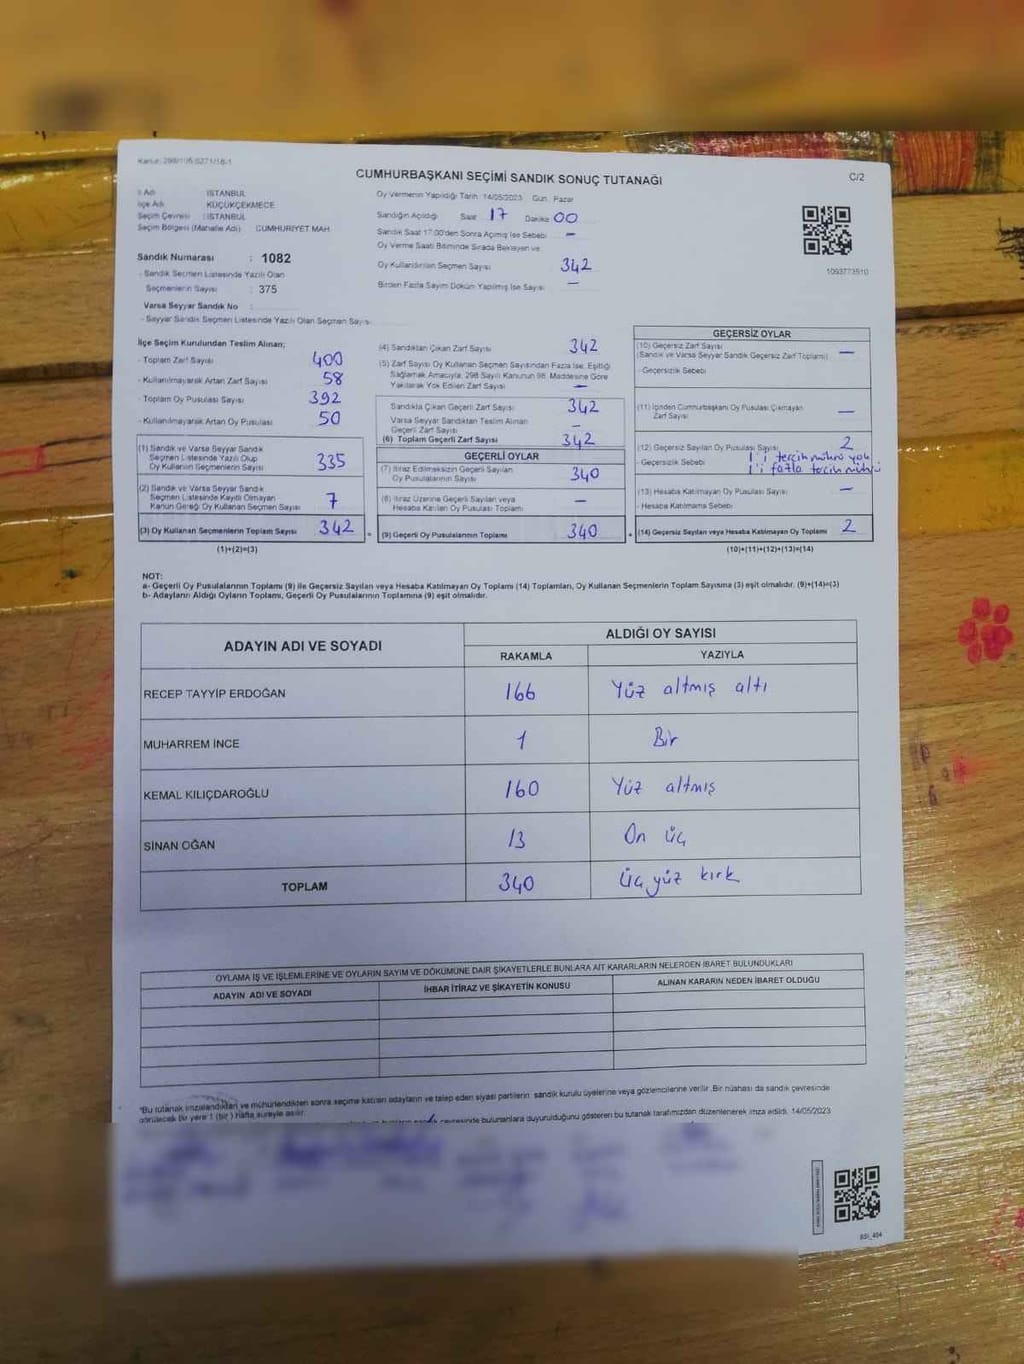 Kanun: 298/105.6271/16-1
CUMHURBAŞKANI SEÇİMİ SANDIK SONUÇ TUTANAĞI
C/2
İl Adı : İSTANBUL
İlçe Adı : KÜÇÜKÇEKMECE
Seçim Çevresi : İSTANBUL
Seçim Bölgesi (Mahalle Adı) : CUMHURİYET MAH.
Sandık Numarası : 1082
- Sandık Seçmen Listesinde Yazılı Olan
Seçmenlerin Sayısı : 375
Varsa Seyyar Sandık No :
- Seyyar Sandık Seçmen Listesinde Yazılı Olan Seçmen Sayısı:
Oy Vermenin Yapıldığı Tarih: 14/05/2023 Gün: Pazar
Sandığın Açıldığı Saat 17 Dakika 00
Sandık Saat 17:00'den Sonra Açılmış İse Sebebi : –
Oy Verme Saati Bitiminde Sırada Bekleyen ve
Oy Kullandırılan Seçmen Sayısı 342
Birden Fazla Sayım Döküm Yapılmış İse Sayısı –
1093773510
İlçe Seçim Kurulundan Teslim Alınan;
- Toplam Zarf Sayısı 400
- Kullanılmayarak Artan Zarf Sayısı 58
- Toplam Oy Pusulası Sayısı 392
- Kullanılmayarak Artan Oy Pusulası 50
(1) Sandık ve Varsa Seyyar Sandık
Seçmen Listesinde Yazılı Olup
Oy Kullanan Seçmenlerin Sayısı 335
(2) Sandık ve Varsa Seyyar Sandık
Seçmen Listesinde Kayıtlı Olmayan
Kanun Gereği Oy Kullanan Seçmen Sayısı 7
(3) Oy Kullanan Seçmenlerin Toplam Sayısı 342
(1)+(2)=(3)
(4) Sandıktan Çıkan Zarf Sayısı 342
(5) Zarf Sayısı Oy Kullanan Seçmen Sayısından Fazla İse, Eşitliği
Sağlamak Amacıyla, 298 Sayılı Kanunun 98. Maddesine Göre
Yakılarak Yok Edilen Zarf Sayısı –
Sandıkta Çıkan Geçerli Zarf Sayısı 342
Varsa Seyyar Sandıktan Teslim Alınan
Geçerli Zarf Sayısı –
(6) Toplam Geçerli Zarf Sayısı 342
GEÇERLİ OYLAR
(7) İtiraz Edilmeksizin Geçerli Sayılan
Oy Pusulalarının Sayısı 340
(8) İtiraz Üzerine Geçerli Sayılan veya
Hesaba Katılan Oy Pusulası Toplamı –
= (9) Geçerli Oy Pusulalarının Toplamı 340
GEÇERSİZ OYLAR
(10) Geçersiz Zarf Sayısı
(Sandık ve Varsa Seyyar Sandık Geçersiz Zarf Toplamı) –
- Geçersizlik Sebebi
(11) İçinden Cumhurbaşkanı Oy Pusulası Çıkmayan
Zarf Sayısı –
(12) Geçersiz Sayılan Oy Pusulası Sayısı 2
- Geçersizlik Sebebi 1'i tercih mührü yok
1'i fazla tercih mührü
(13) Hesaba Katılmayan Oy Pusulası Sayısı –
- Hesaba Katılmama Sebebi
+ (14) Geçersiz Sayılan veya Hesaba Katılmayan Oy Toplamı 2
(10)+(11)+(12)+(13)=(14)
NOT:
a- Geçerli Oy Pusulalarının Toplamı (9) ile Geçersiz Sayılan veya Hesaba Katılmayan Oy Toplamı (14) Toplamları, Oy Kullanan Seçmenlerin Toplam Sayısına (3) eşit olmalıdır. (9)+(14)=(3)
b- Adayların Aldığı Oyların Toplamı, Geçerli Oy Pusulalarının Toplamına (9) eşit olmalıdır.
ADAYIN ADI VE SOYADI
ALDIĞI OY SAYISI
RAKAMLA YAZIYLA
RECEP TAYYİP ERDOĞAN 166 Yüz altmış altı
MUHARREM İNCE 1 Bir
KEMAL KILIÇDAROĞLU 160 Yüz altmış
SİNAN OĞAN 13 On üç
TOPLAM 340 Üç yüz kırk
OYLAMA İŞ VE İŞLEMLERİNE VE OYLARIN SAYIM VE DÖKÜMÜNE DAİR ŞİKAYETLERLE BUNLARA AİT KARARLARIN NELERDEN İBARET BULUNDUKLARI
ADAYIN ADI VE SOYADI İHBAR İTİRAZ VE ŞİKAYETİN KONUSU ALINAN KARARIN NEDEN İBARET OLDUĞU
"Bu tutanak imzalandıktan ve mühürlendikten sonra seçime katılan adayların ve talep eden siyasi partilerin sandık kurulu üyelerine veya gözlemcilerine verilir. Bir nüshası da sandık çevresinde
görülecek bir yere 1 (bir) hafta süreyle asılır.
çevresinde bulunanlara duyurulduğunu gösteren bu tutanak tarafımızdan düzenlenerek imza edildi. 14/05/2023